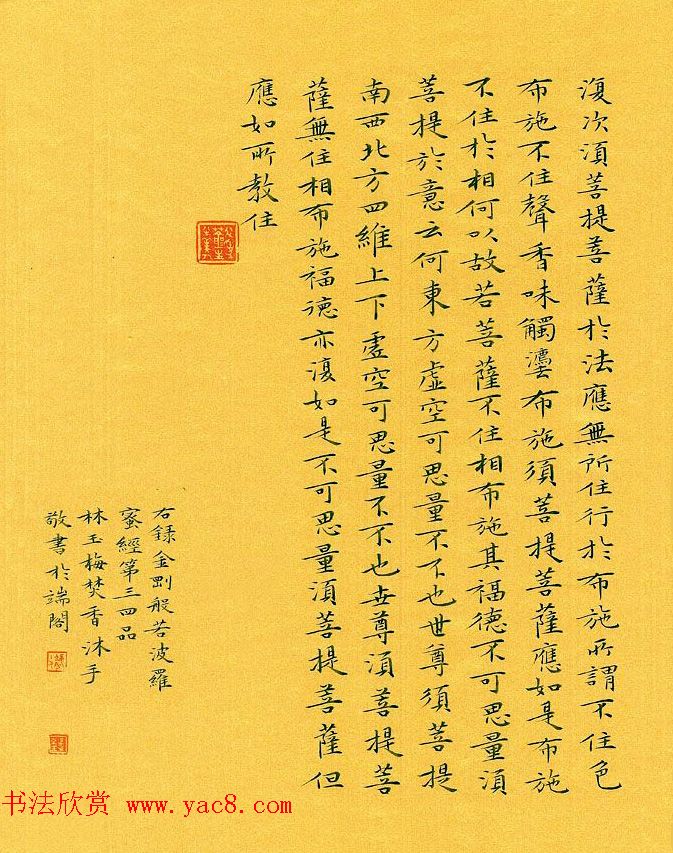 復次須菩提菩薩於法應無所住行於布施所謂不住色
布施不住聲香味觸灋布施須菩提菩薩應如是布施
不住於相何以故若菩薩不住相布施其福德不可思量須
菩提於意云何東方虛空可思量不不也世尊須菩提
南西北方四維上下虛空可思量不不也世尊須菩提菩
薩無住相布施福德亦復如是不可思量須菩提菩薩但
應如所教住
右録金剛般若波羅
蜜經第三四品
林玉梅焚香沐手
敬書於端閣
书法欣赏 www.yac8.com